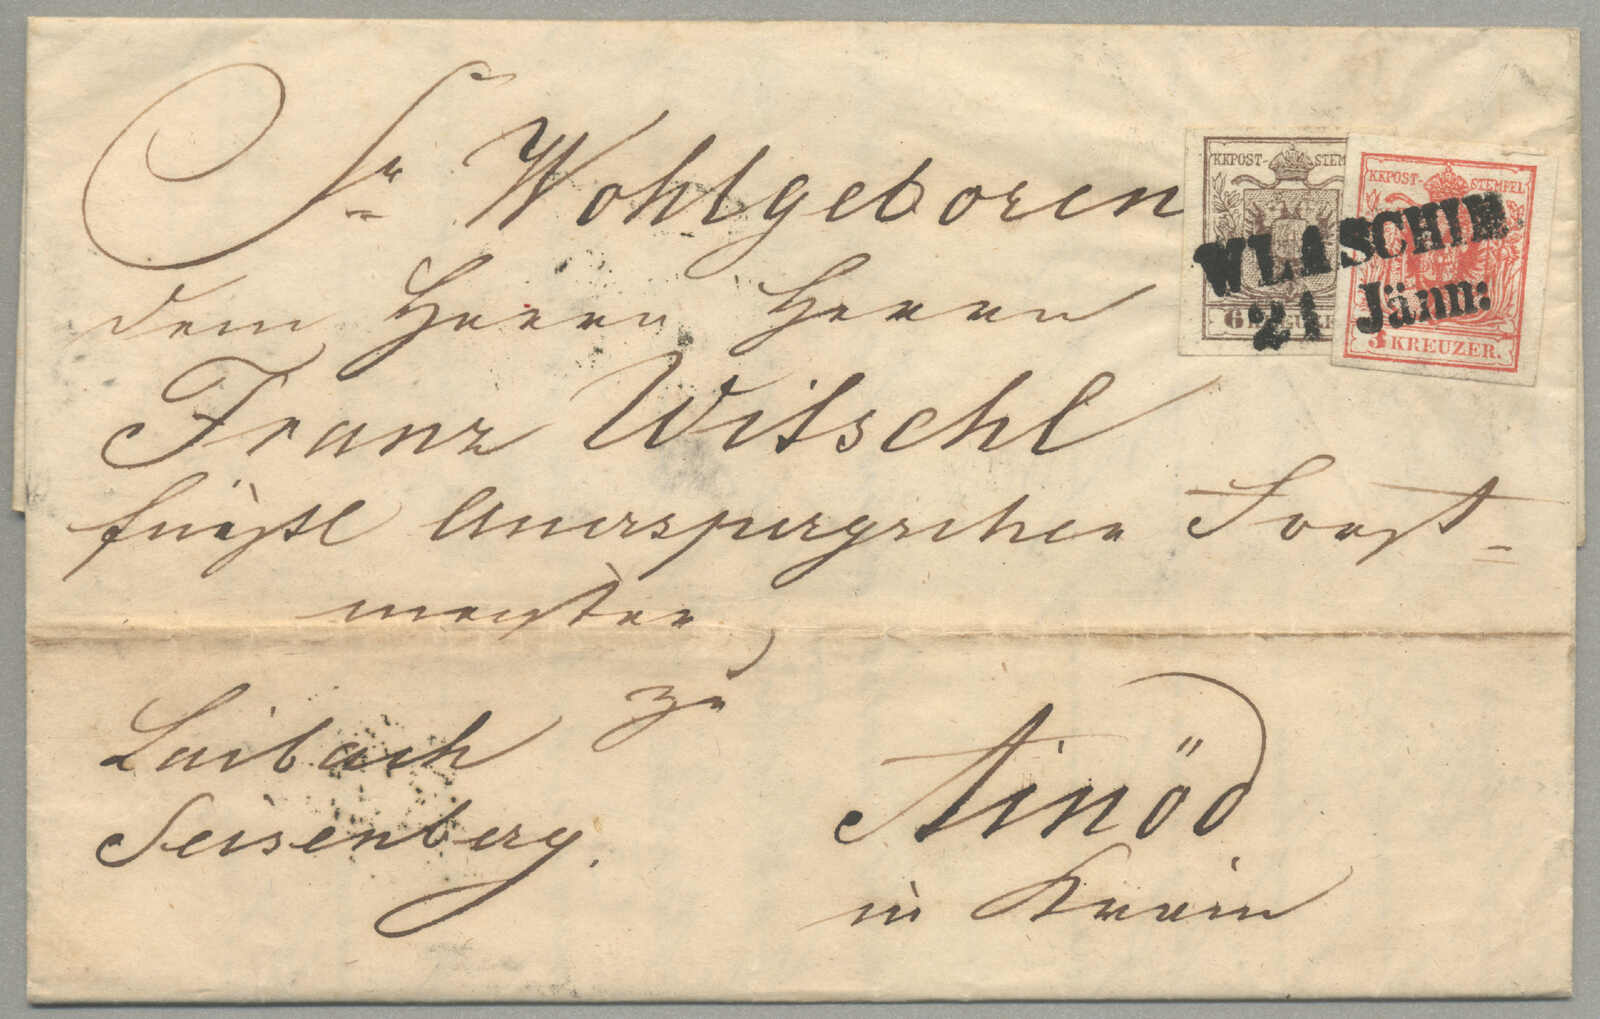 Sr Wohlgeboren
dem Herrn Herrn
Franz Witschl
fürstl Auerspergschen Forst=
meister
zu
Laibach
Seisenberg.
Ainöd
in Krain
KKPOST-STEM
6 K
KKPOST-STEMPEL
3 KREUZER.
WLASCHIM.
21 Jänn: